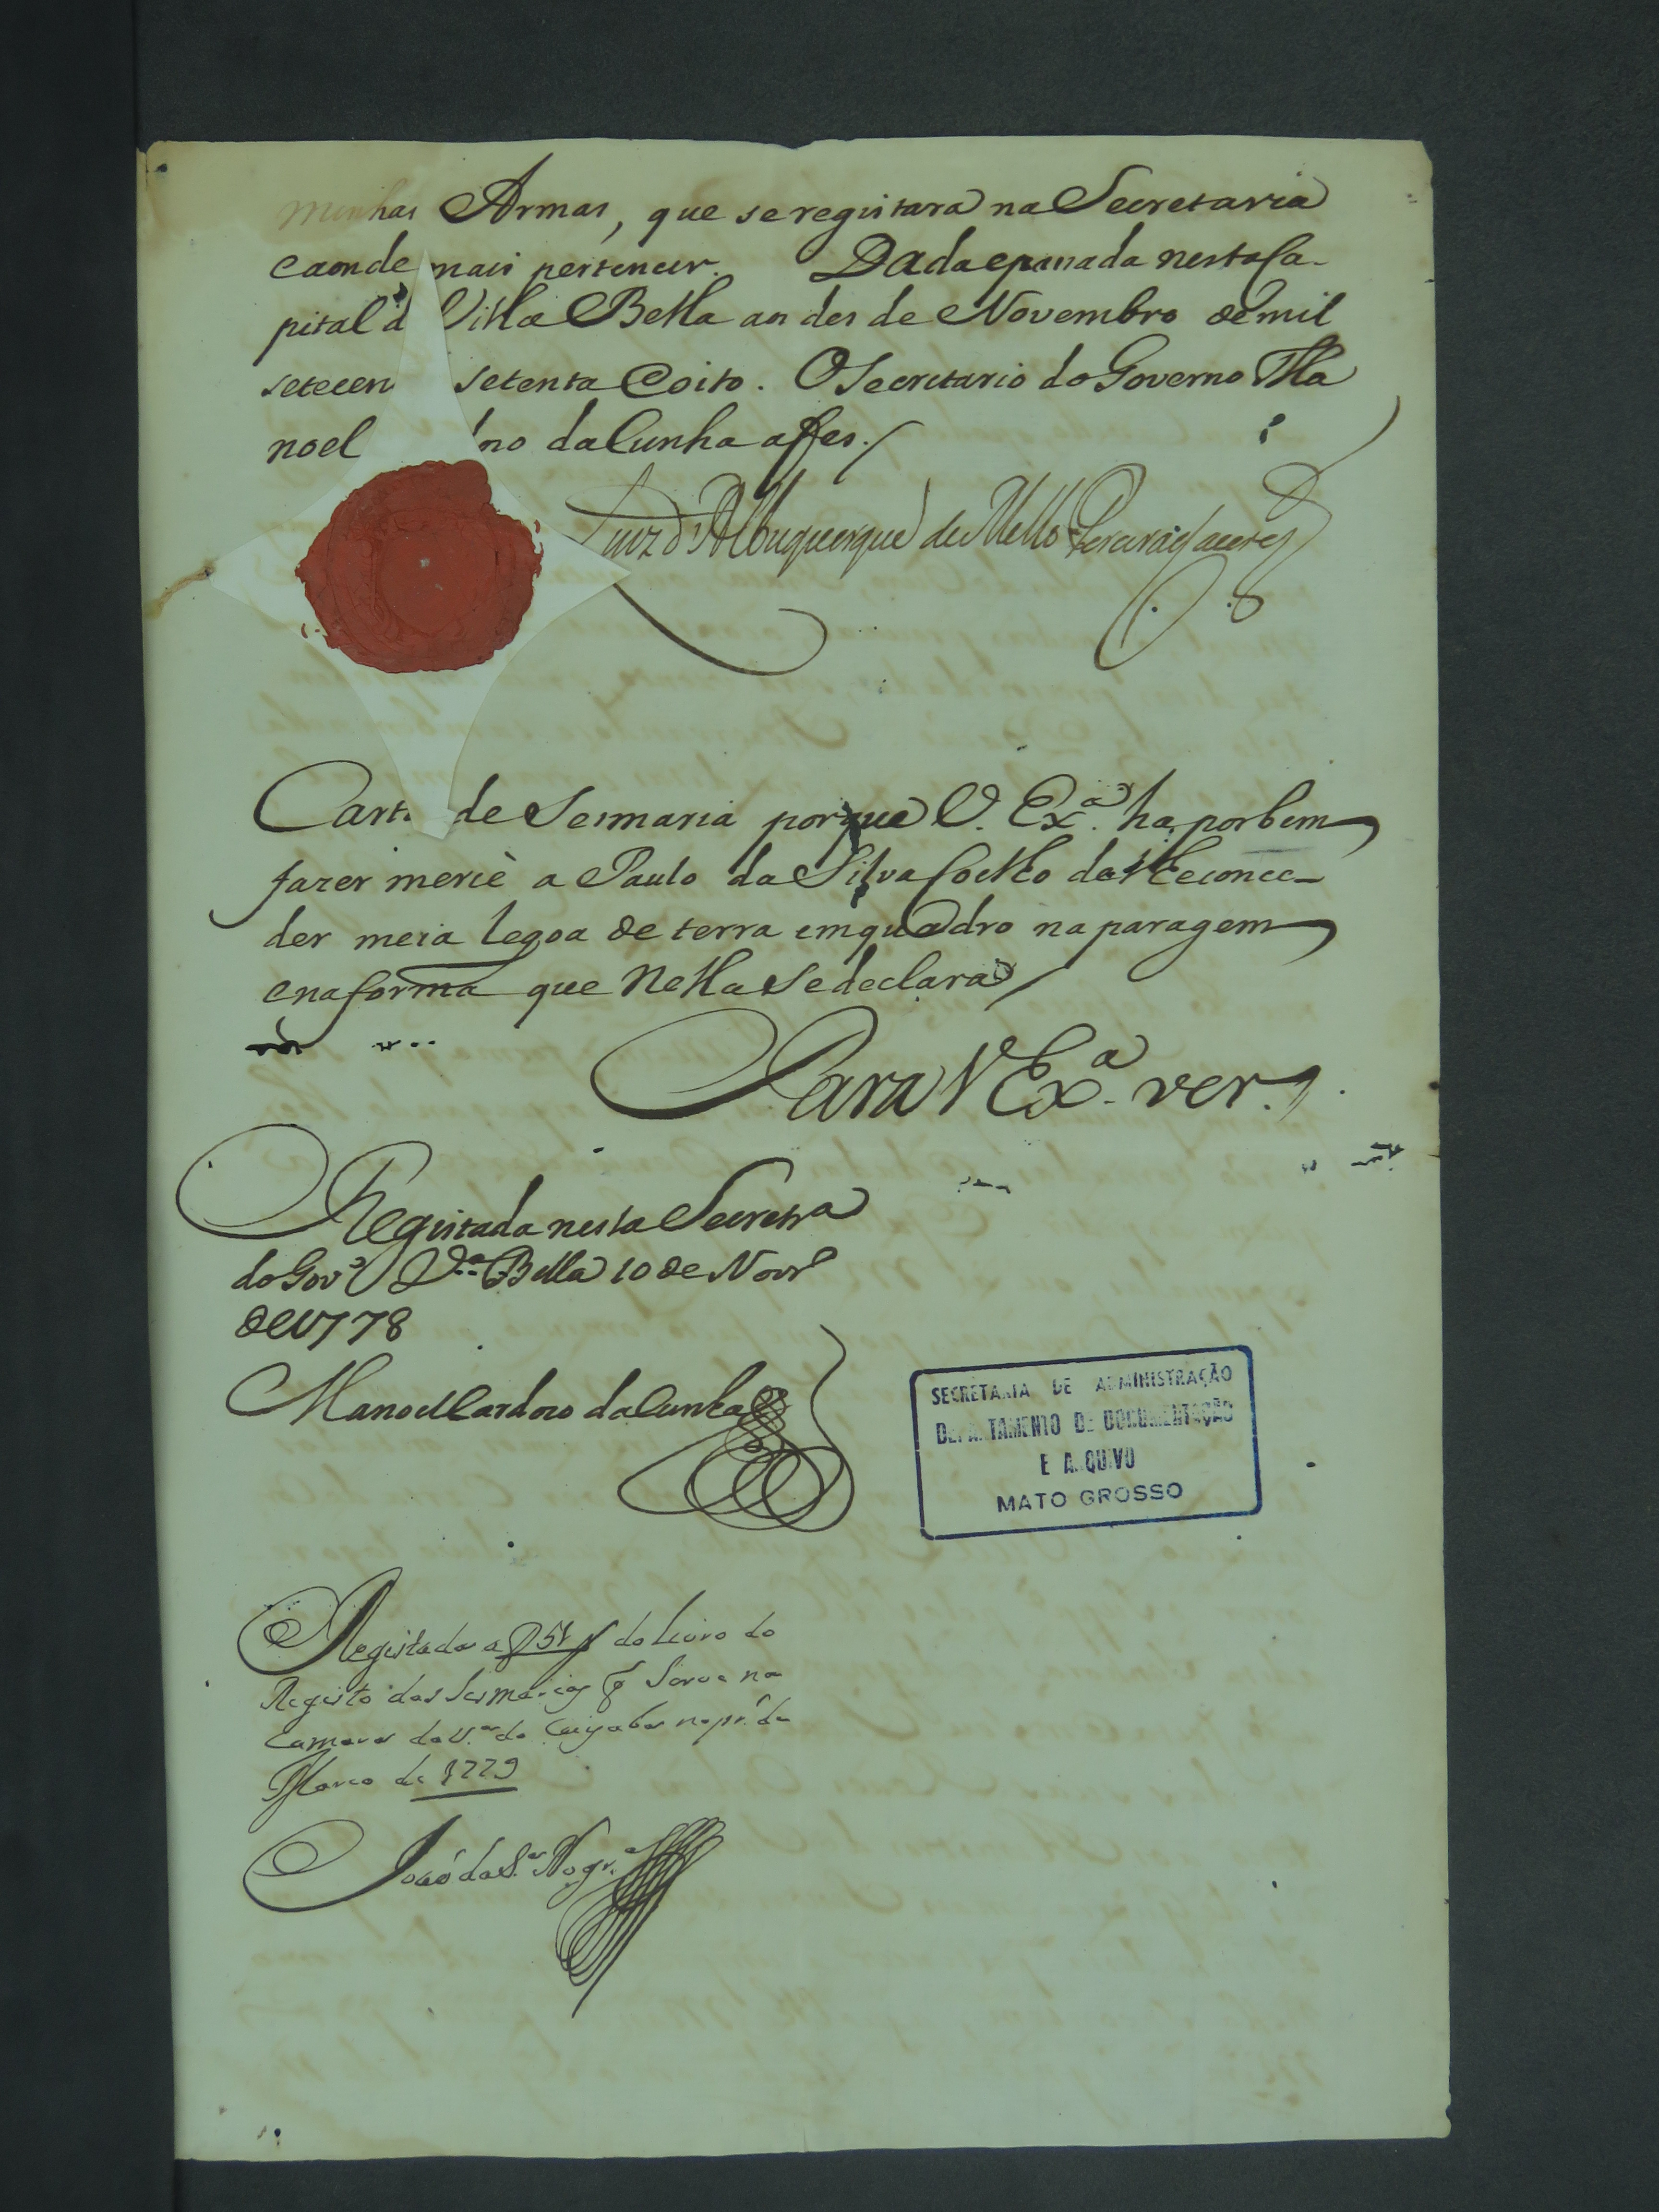 minhas Armas, que se registara na Secretaria
e aonde mais pertencer. Dada e passada nesta Ca-
pital d Villa Bella aos des de Novembro de mil
setecen setenta e oito. O Secretario do Governo Ma
noel da Cunha a fes./
Luiz d'Albuquerque de Mello Pereira e Caceres
Cart de Sesmaria porque V. Ex.ª ha por bem
fazer mercè a Paulo da Silva Coelho de lhe conce-
der meia legoa de terra em quadro na paragem
e na forma que nella se declara/
Para V Ex.ª ver.
Registada nesta Secretrª
do Govº Vª Bella 10 de Novrº
de 1778
Manoel Cardozo da Cunha
SECRETARIA DE ADMINISTRAÇÃO
DEPARTAMENTO DE DOCUMENTAÇÃO
E ARQUIVO
MATO GROSSO
Registada a do Livro do
Registo das Sesmarias q Serve na
Camera da V.ª do Cuyaba no pr.º de
Marco de 1779
João da S.ª Nogr.ª